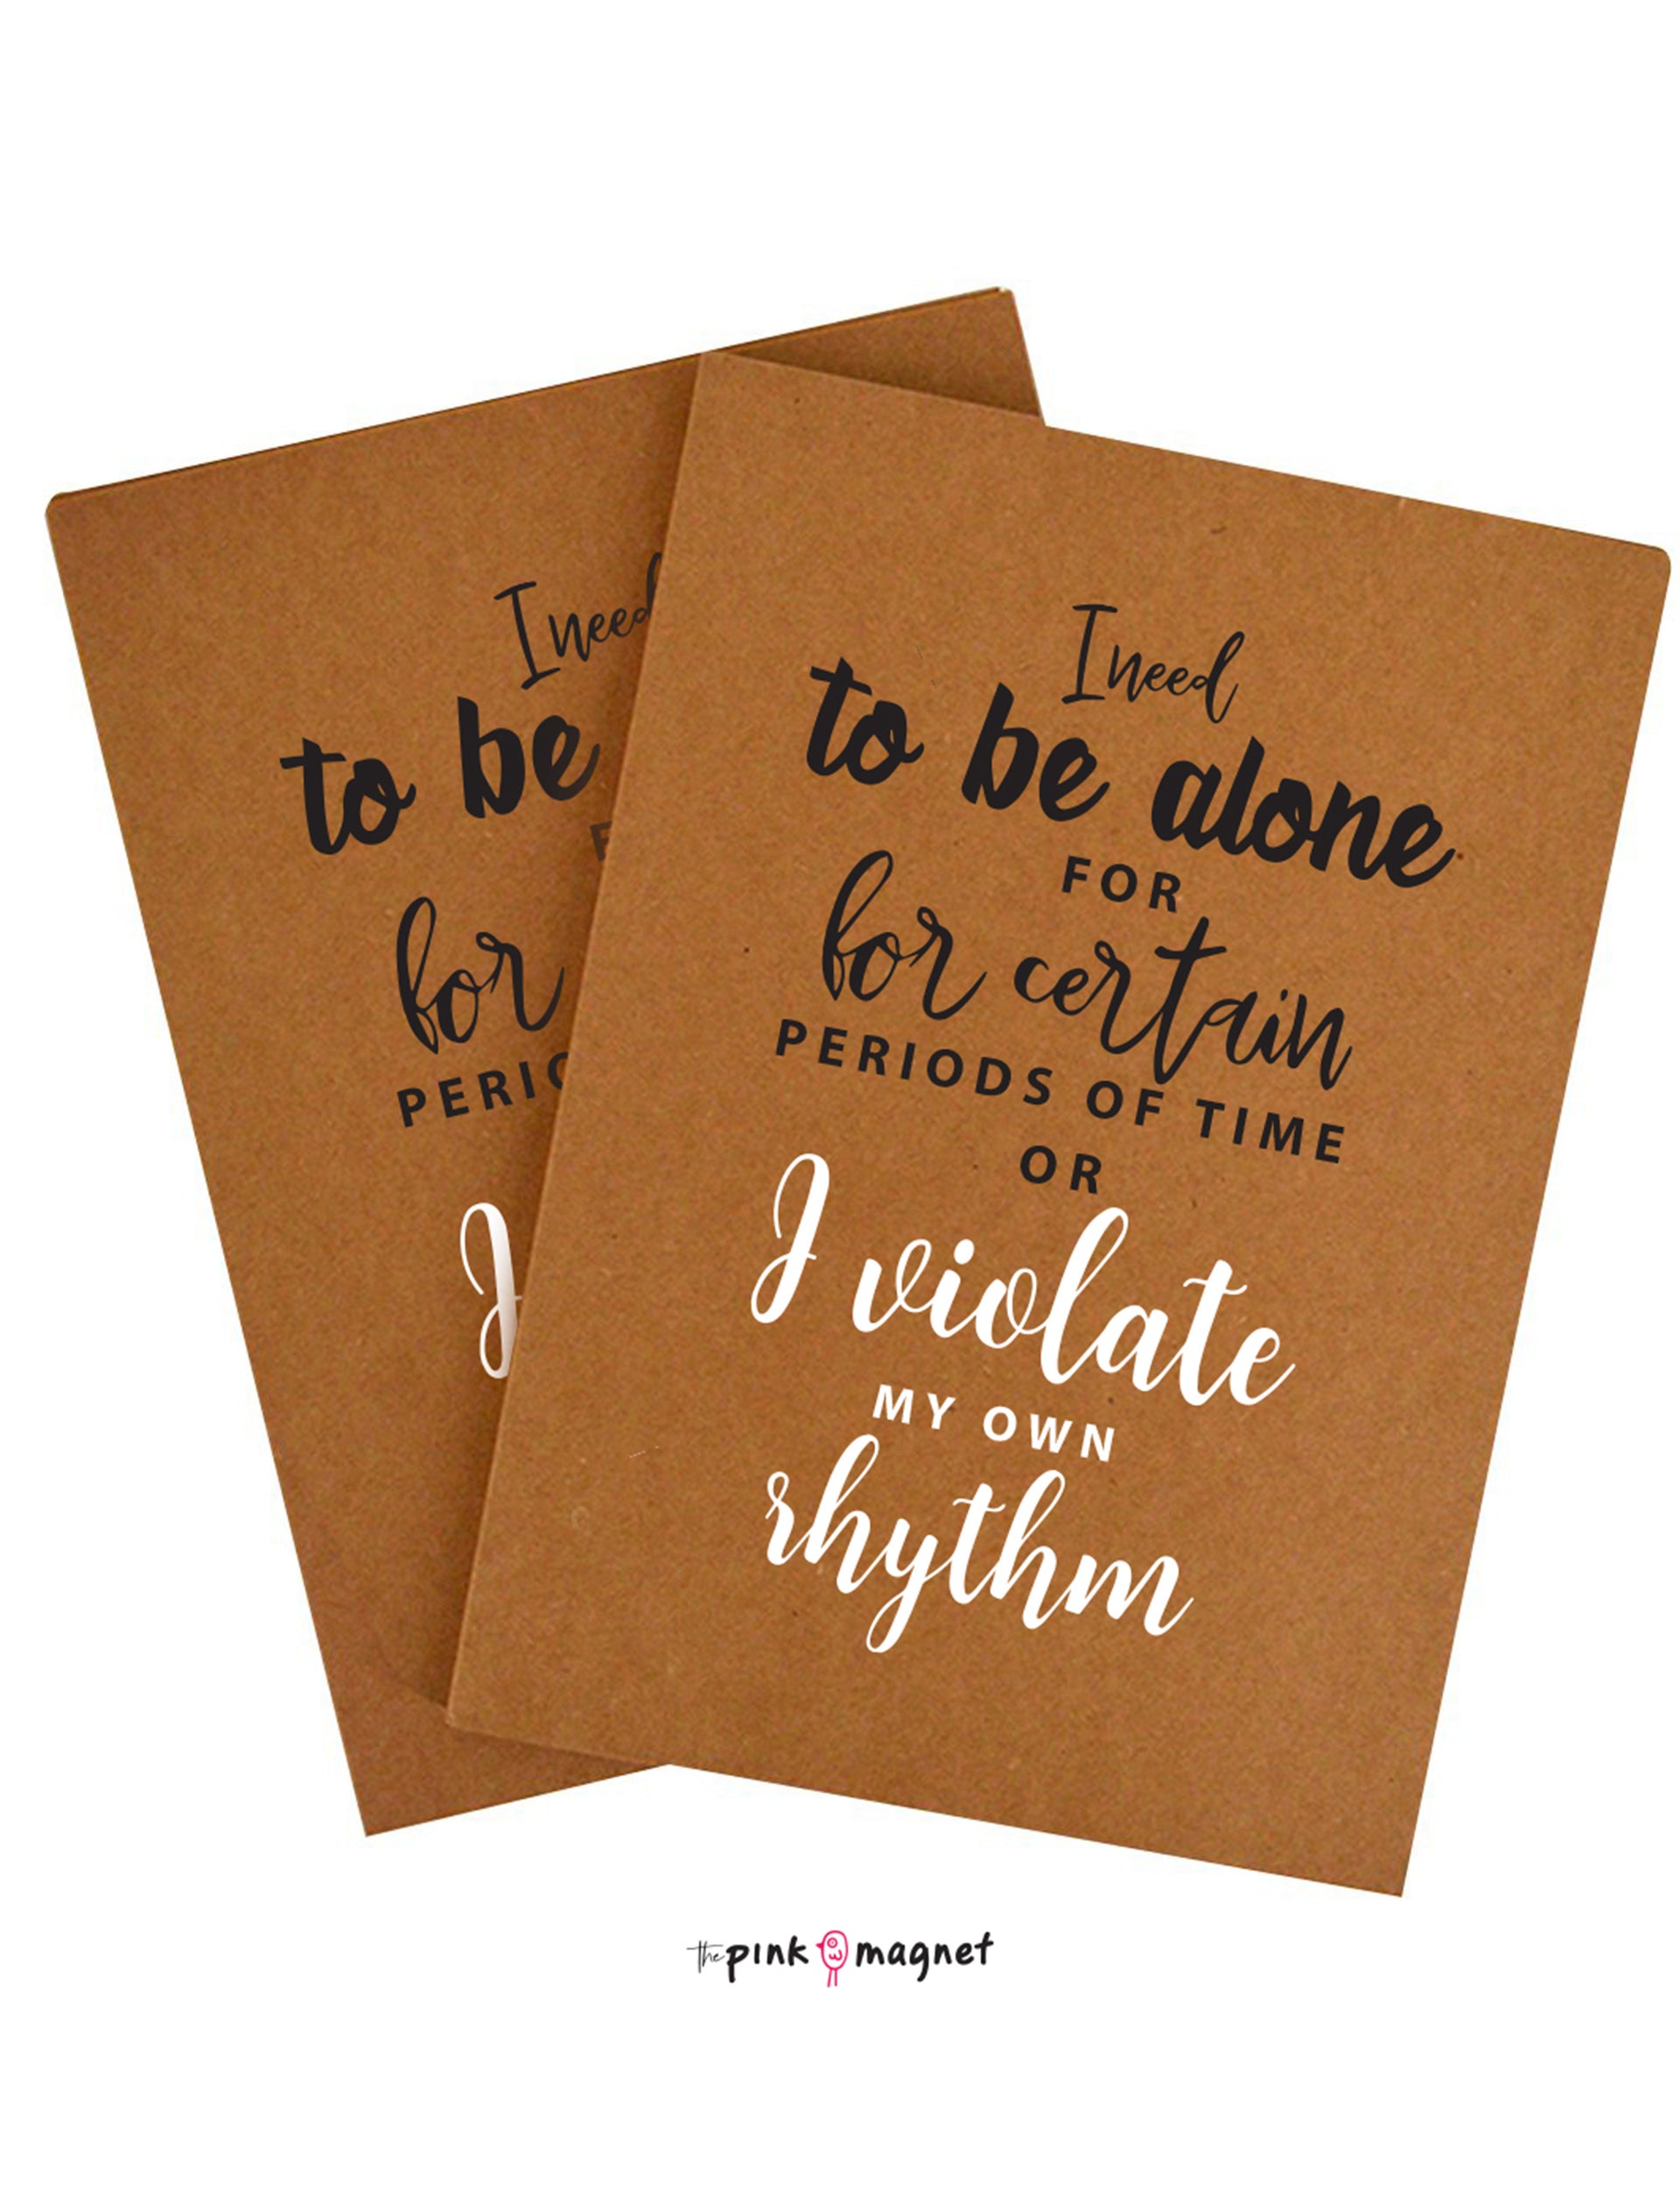 I need
to be
for
PERIO
I
I need
to be alone
FOR
for certain
PERIODS OF TIME
OR
I violate
MY OWN
rhythm
the pink magnet